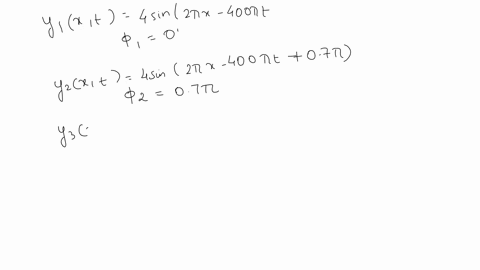 y₁(x,t) = 4 sin(2πx - 400πt
φ₁ = 0°
y₂(x,t) = 4 sin(2πx - 400πt + 0.7π)
φ₂ = 0.7π
y₃(